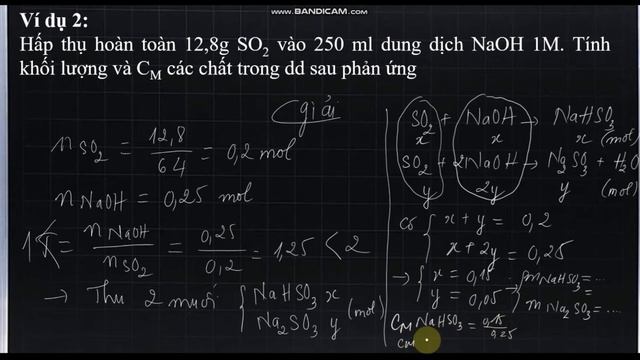 WWW.BANDICAM.COM
Ví dụ 2:
Hấp thụ hoàn toàn 12,8g SO₂ vào 250 ml dung dịch NaOH 1M. Tính
khối lượng và C_M các chất trong dd sau phản ứng
giải
n SO₂ = 12,8 / 64 = 0,2 mol
n NaOH = 0,25 mol
1 < T = n NaOH / n SO₂ = 0,25 / 0,2 = 1,25 < 2
→ Thu 2 muối { NaHSO₃ x
Na₂SO₃ y (mol)
SO₂ + NaOH → NaHSO₃
x x x (mol)
SO₂ + 2NaOH → Na₂SO₃ + H₂O
y 2y y (mol)
có { x + y = 0,2
x + 2y = 0,25
→ { x = 0,15 → m NaHSO₃ = ...
y = 0,05 m Na₂SO₃ = ...
C_M NaHSO₃ = 0,15 / 0,25
CM